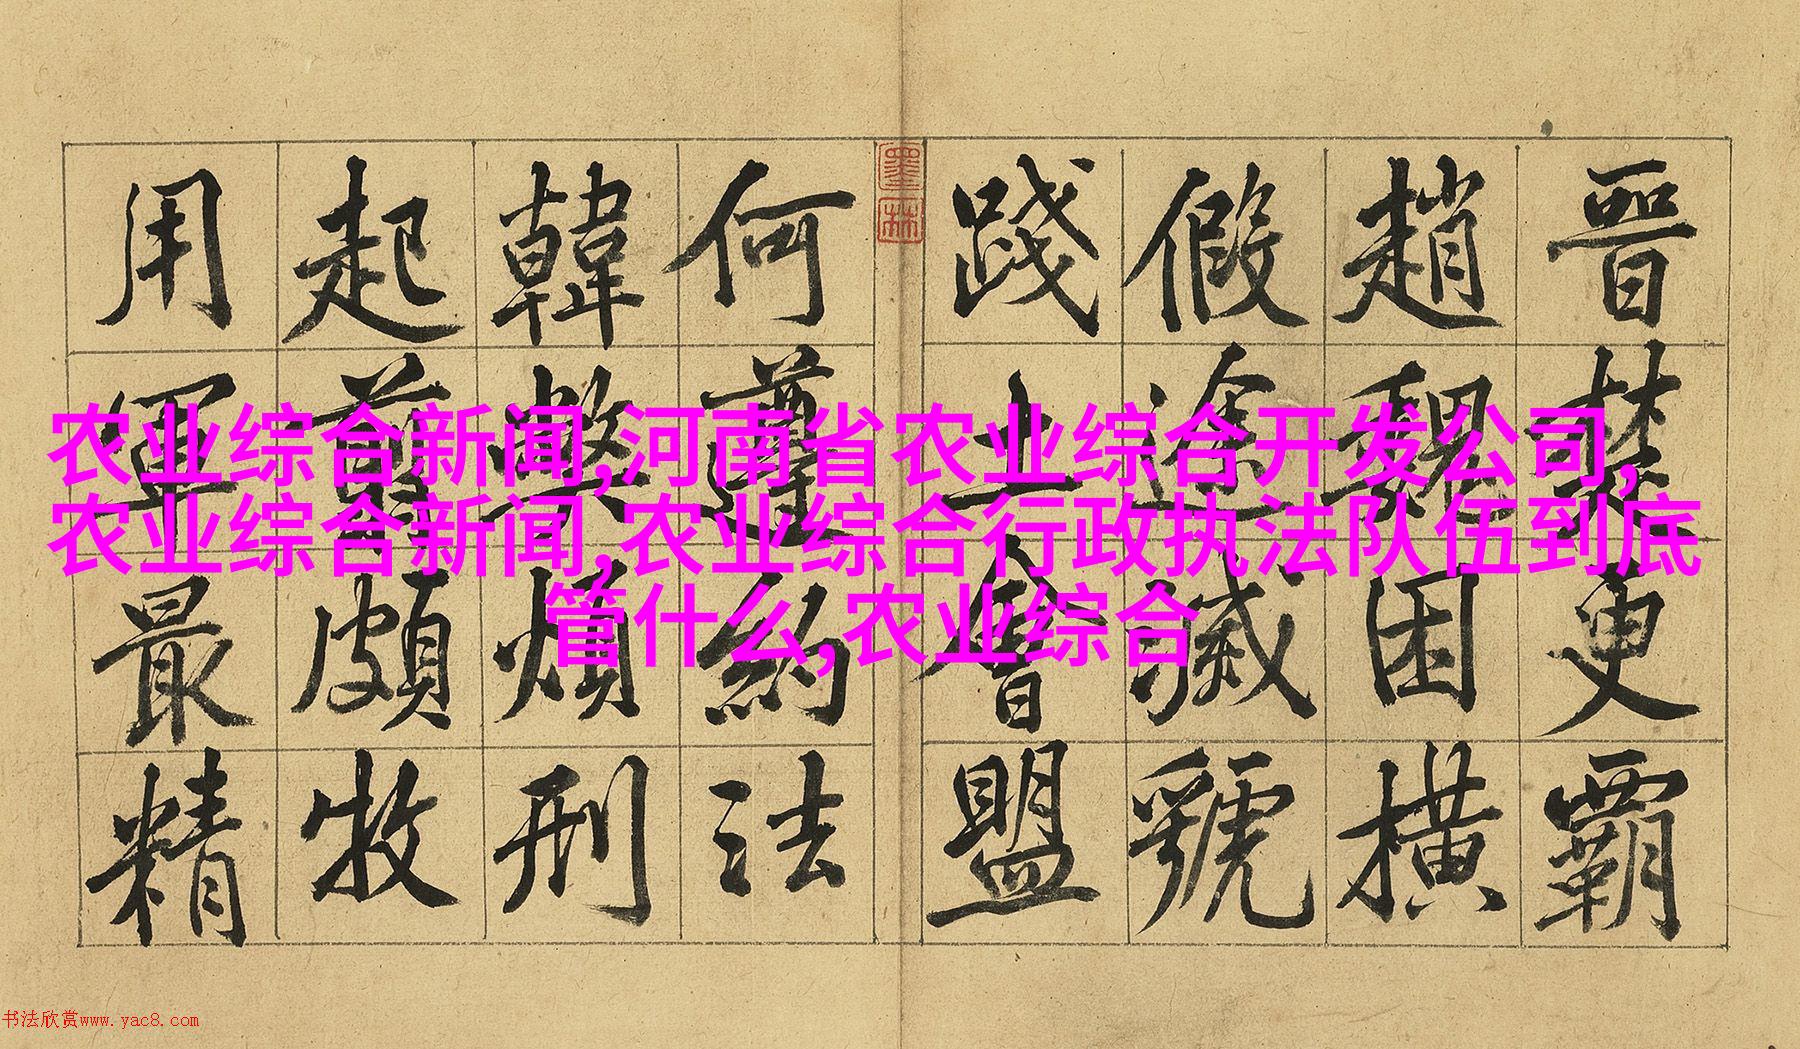 晉楚更霸
趙魏困橫
假途滅虢
踐土會盟
墨林
何遵約法
韓弊煩刑
起翦頗牧
用軍最精
农业综合新闻,河南省农业综合开发公司,
农业综合新闻,农业综合行政执法队伍到底
管什么,农业综合
书法欣赏www.yac8.com